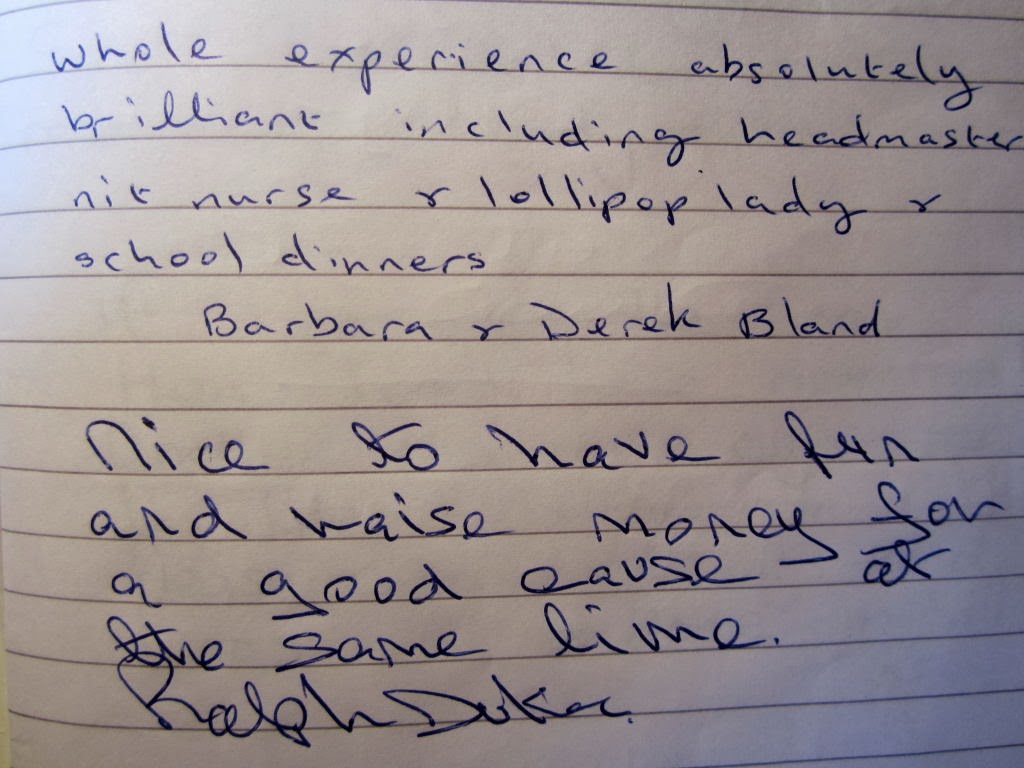 whole experience absolutely
brilliant including headmaster
nit nurse & lollipop lady &
school dinners
Barbara & Derek Bland
Nice to have fun
and raise money for
a good cause - at
the same time.
Ralph